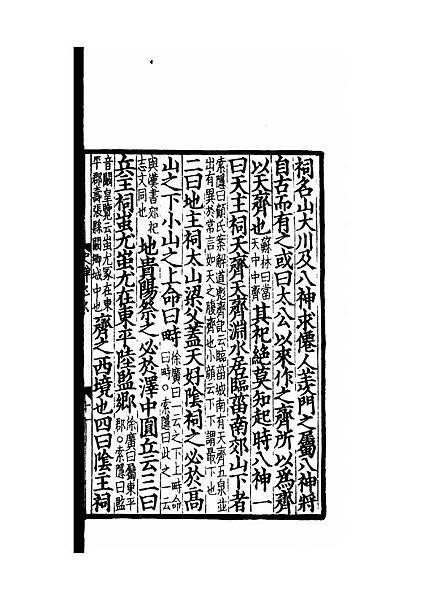 祠名山大川及八神求僊人羨門之屬八神將
自古而有之或曰太公以來作之齊所以為齊
以天齊也
蘇林曰當
天中央齊
其祀絕莫知起時八神一
曰天主祠天齊天齊淵水居臨菑南郊山下者
索隱曰顧氏案解道彪齊記云臨菑城南有天齊五泉並
出有異於常言如天之腹齊也小顏云下下謂最下也
二曰地主祠太山梁父蓋天好陰祠之必於高
山之下小山之上命曰畤
徐廣曰一云之下上畤命
曰畤○索隱曰此之一云
與漢書郊祀
志文同也
地貴陽祭之必於澤中圓丘云三曰
兵主祠蚩尤蚩尤在東平陸監鄉
徐廣曰屬東平
郡○索隱曰監
音闞皇覽云蚩尤冢在東
平郡壽張縣闞鄉城中也
齊之西境也四曰陰主祠